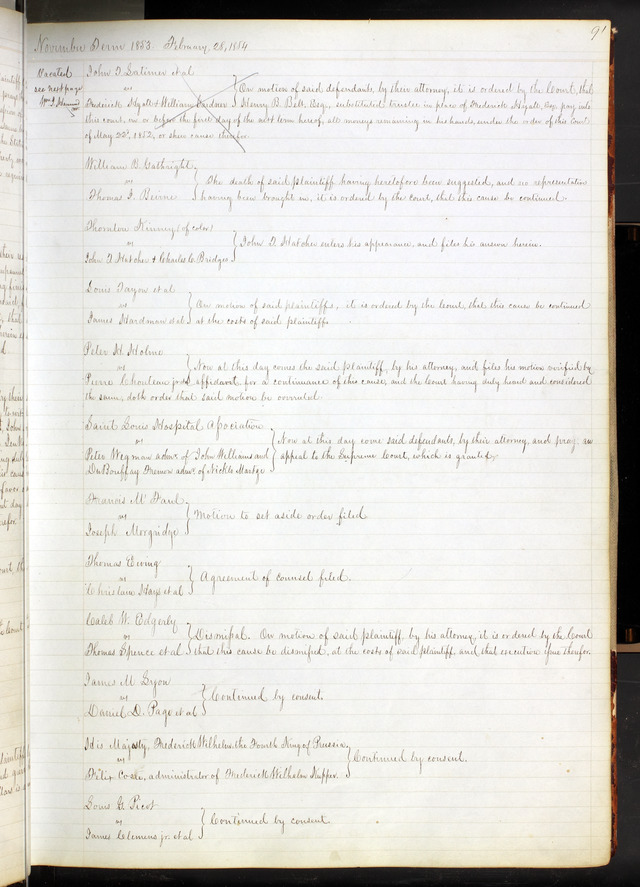 91
November Term 1853. February, 28, 1854
Vacated
see next page
John T. Latimer et al
vs
Frederick Hyatt & William Gardner
On motion of said defendants, by their attorney, it is ordered by the Court, that
Henry B. Belt, Esq., substituted trustee in place of Frederick Hyatt, Esq. pay into
this court, on or before the first day of the next term hereof, all moneys remaining in his hands, under the order of this Court
of May 22d, 1852, or shew cause therefor.
William B. Gathright,
vs
Thomas J. Beirne
The death of said plaintiff having heretofore been suggested, and no representative
having been brought in, it is ordered by the court, that this cause be continued.
Thornton Kinney (of color)
vs
John F. Hatcher & Charles C. Bridges
John F. Hatcher enters his appearance and files his answer herein.
Louis Tayon et al
vs
James Hardman et al
On motion of said plaintiffs, it is ordered by the Court, that this cause be continued
at the costs of said plaintiffs
Peter H. Holme
vs
Pierre Chouteau jr. et al
Now at this day comes the said plaintiff, by his attorney, and files his motion verified by
affidavit, for a continuance of this cause, and the Court having duly heard and considered
the same, doth order that said motion be overruled
Saint Louis Hospital Association
vs
Peter Wegman admr. of John Williams and
DuBouffay Fremon admr. of Nickles
Now at this day come said defendants, by their attorney, and pray an
appeal to the Supreme Court, which is granted.
Francis McFaul,
vs
Joseph Morgridge
Motion to set aside order filed
Thomas Ewing
vs
Christain Hays et al
Agreement of counsel filed.
Caleb W. Edgerly
vs
Thomas Spence et al
Dismissal. On motion of said plaintiff, by his attorney, it is ordered by the Court
that this cause be dismissed, at the costs of said plaintiff, and that execution issue therefor.
James M. Gryon
vs
Daniel D. Page et al
Continued by consent.
His Majesty, Frederick Wilhelm the Fourth King of Prussia,
vs
Felix Coste, administrator of Frederick Wilhelm Kupper.
Continued by consent.
Louis G. Picot
vs
James Clemens jr. et al
Continued by consent